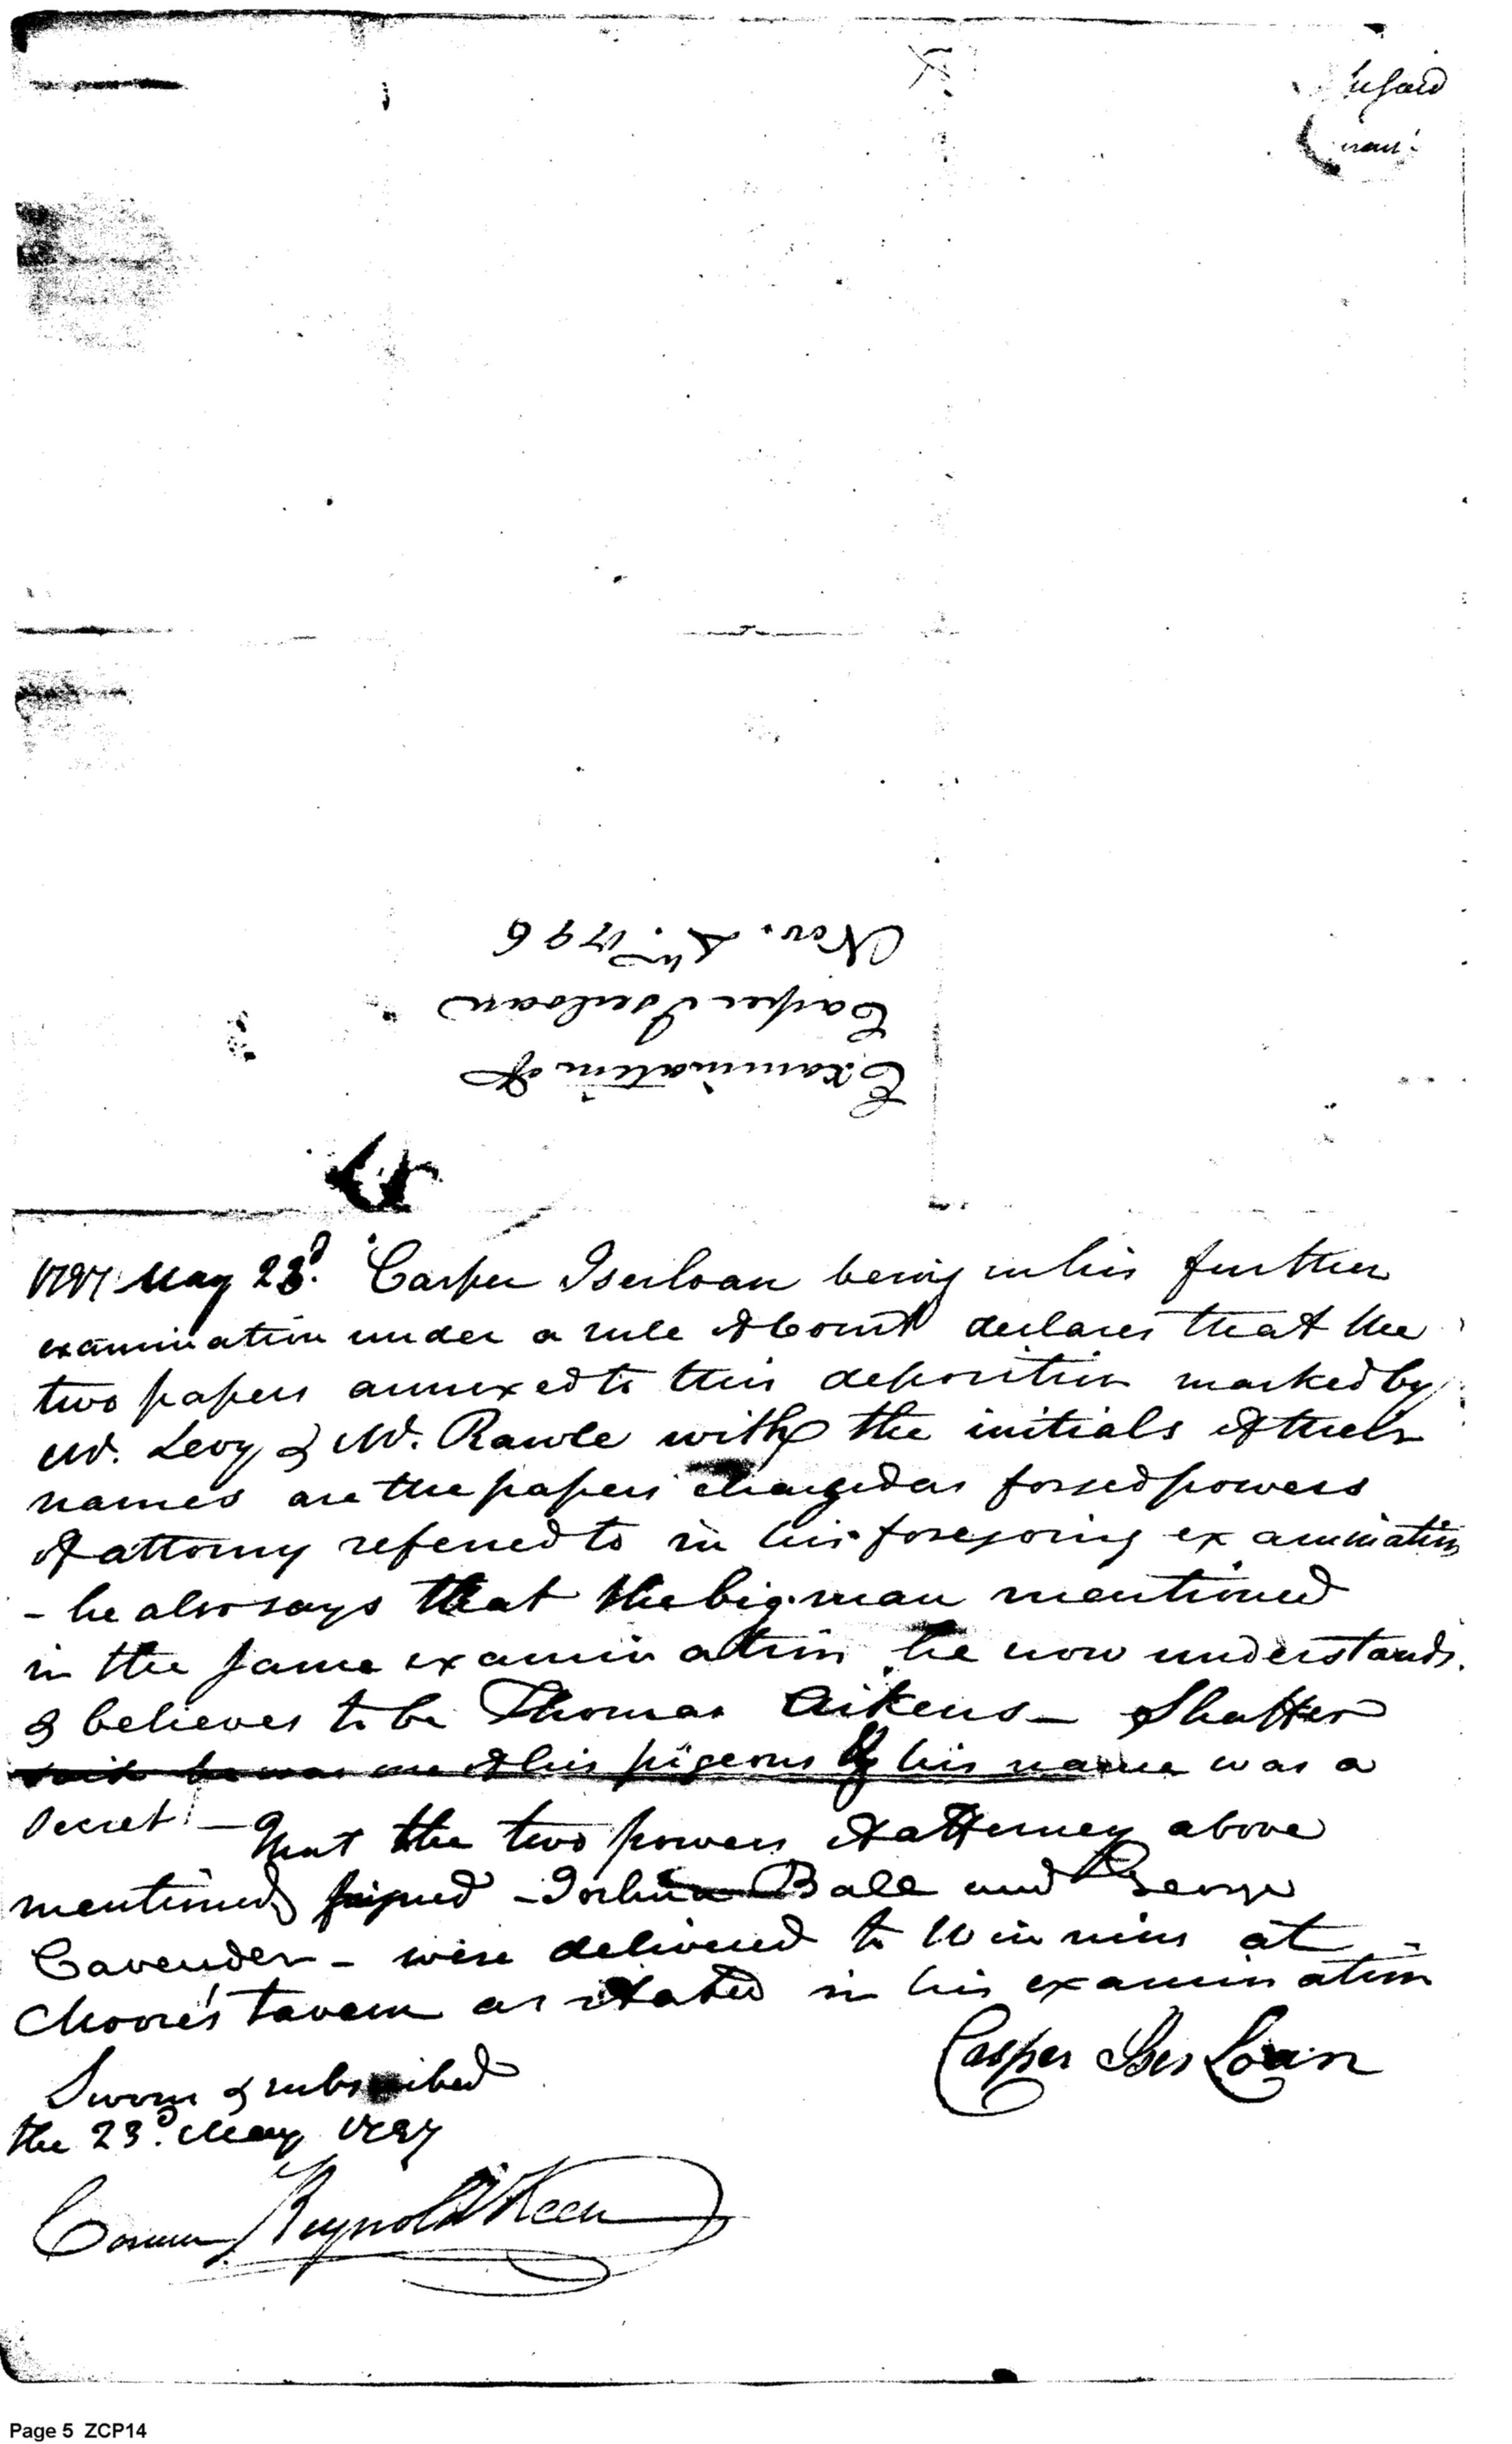 he said
Examination of
Casper Iserloan
Nov. 4th. 1796
1797 May 23d. Casper Iserloan being in his further
examination under a rule of Court declares that the
two papers annexed to this deposition marked by
Mr. Levy & Mr. Rawle with the initials of their
names are the papers charged as forged powers
of attorny referred to in his foregoing examination
- he also says that the big man mentioned
in the same examination he now understands
& believes to be Thomas Aikens - Shaffer
said he was one of his pigeons & his name was a
secret - That the two powers of atterney above
mentioned signed - Joshua Ball and George
Cavender - were delivered to Winnins at
Moore's tavern as stated in his examination
Casper Iser Loan
Sworn & subscribed
the 23d. May 1797
Reynold Keen
Page 5 ZCP14